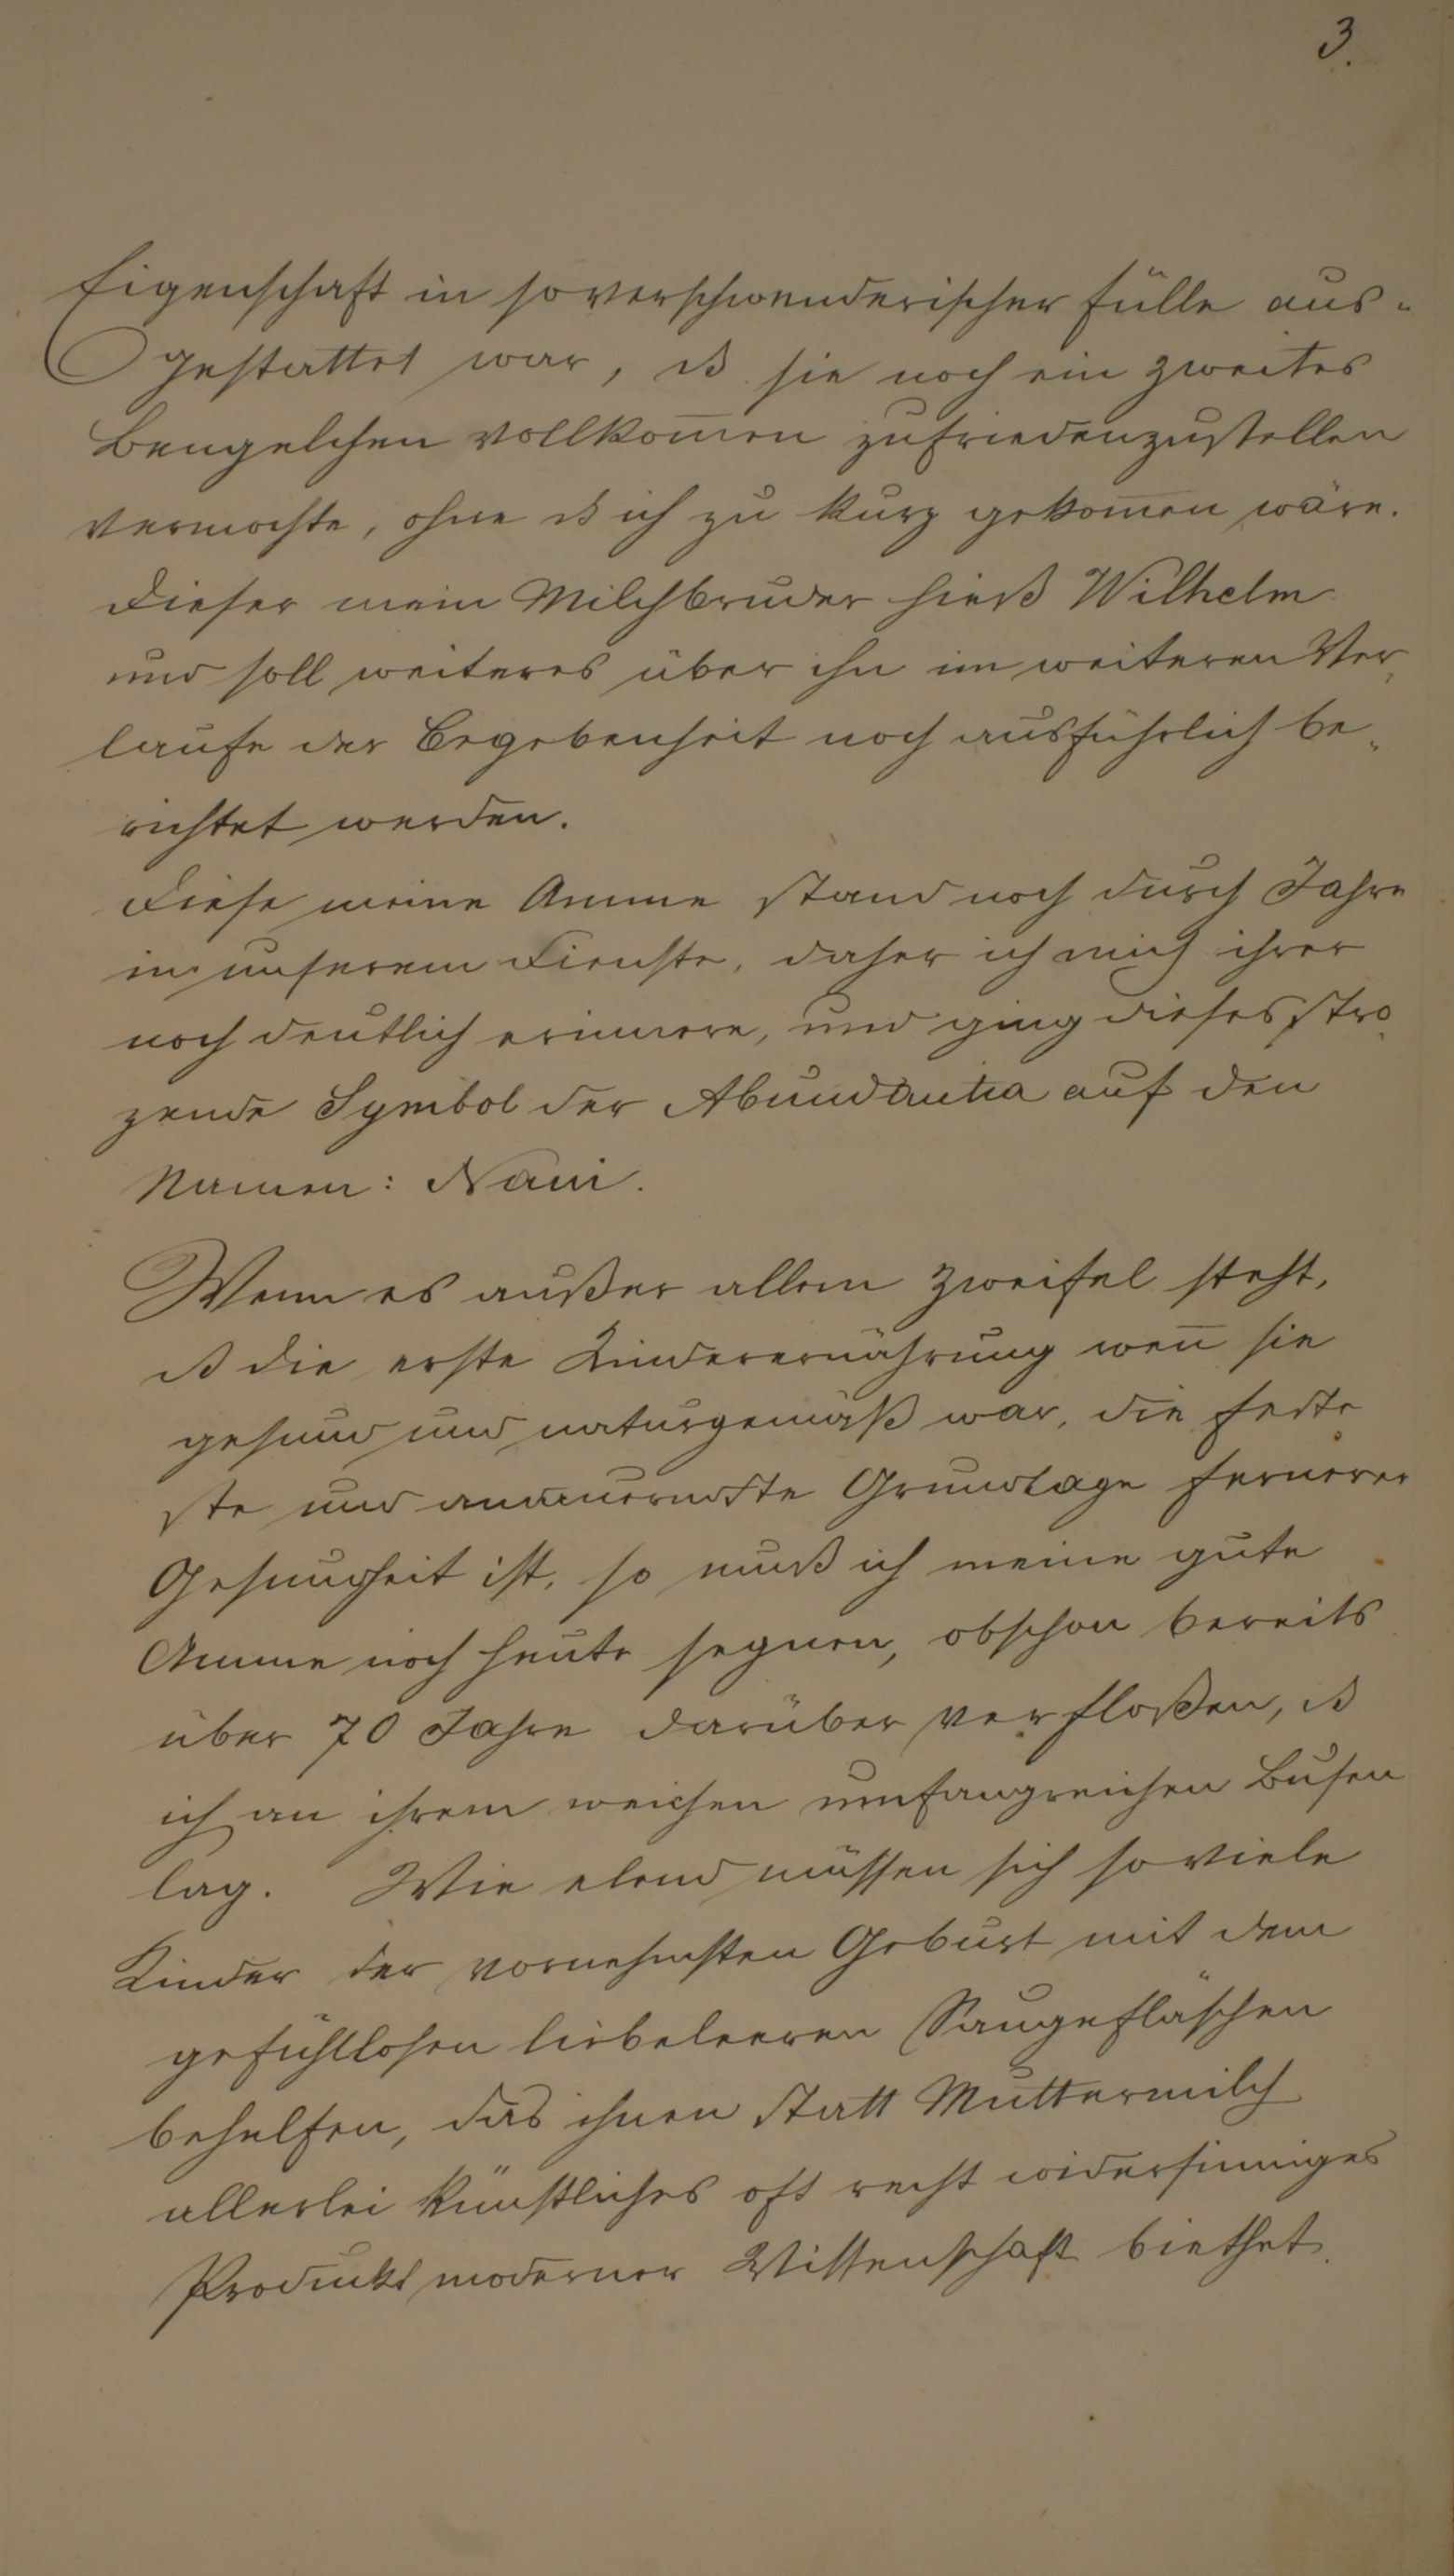 3.
Eigenschaft in so verschwenderischer Fülle aus-
gestattet war, dß sie noch ein zweites
Bengelchen vollkom̅en zufriedenzustellen
vermochte, ohne dß ich zu kurz gekom̅en wäre.
Dieser mein Milchbruder hieß Wilhelm
und soll weiteres über ihn im weiteren Ver-
laufe der Begebenheit noch ausführlich be-
richtet werden.
Diese meine Amme stand noch durch Jahre
in unserem Dienste, daher ich mich ihrer
noch deutlich erinnere, und ging dieses stro-
zende Symbol der Abundantia auf den
Namen: Nani.
Wenn es außer allem Zweifel steht,
dß die erste Kinderernährung wen̅ sie
gesund und naturgemäß war, die feste
ste und andauerndste Grundlage fernerer
Gesundheit ist, so muß ich meine gute
Amme noch heute segnen, obschon bereits
über 70 Jahre darüber verfloßen, dß
ich an ihrem weichen umfangreichen Busen
lag. Wie elend müssen sich so viele
Kinder der vornehmsten Geburt mit dem
gefühllosen liebeleeren Saugefläschen
behelfen, das ihnen statt Muttermilch
allerlei künstliches oft recht widersinniges
Produckt moderner Wissenschaft biethet.